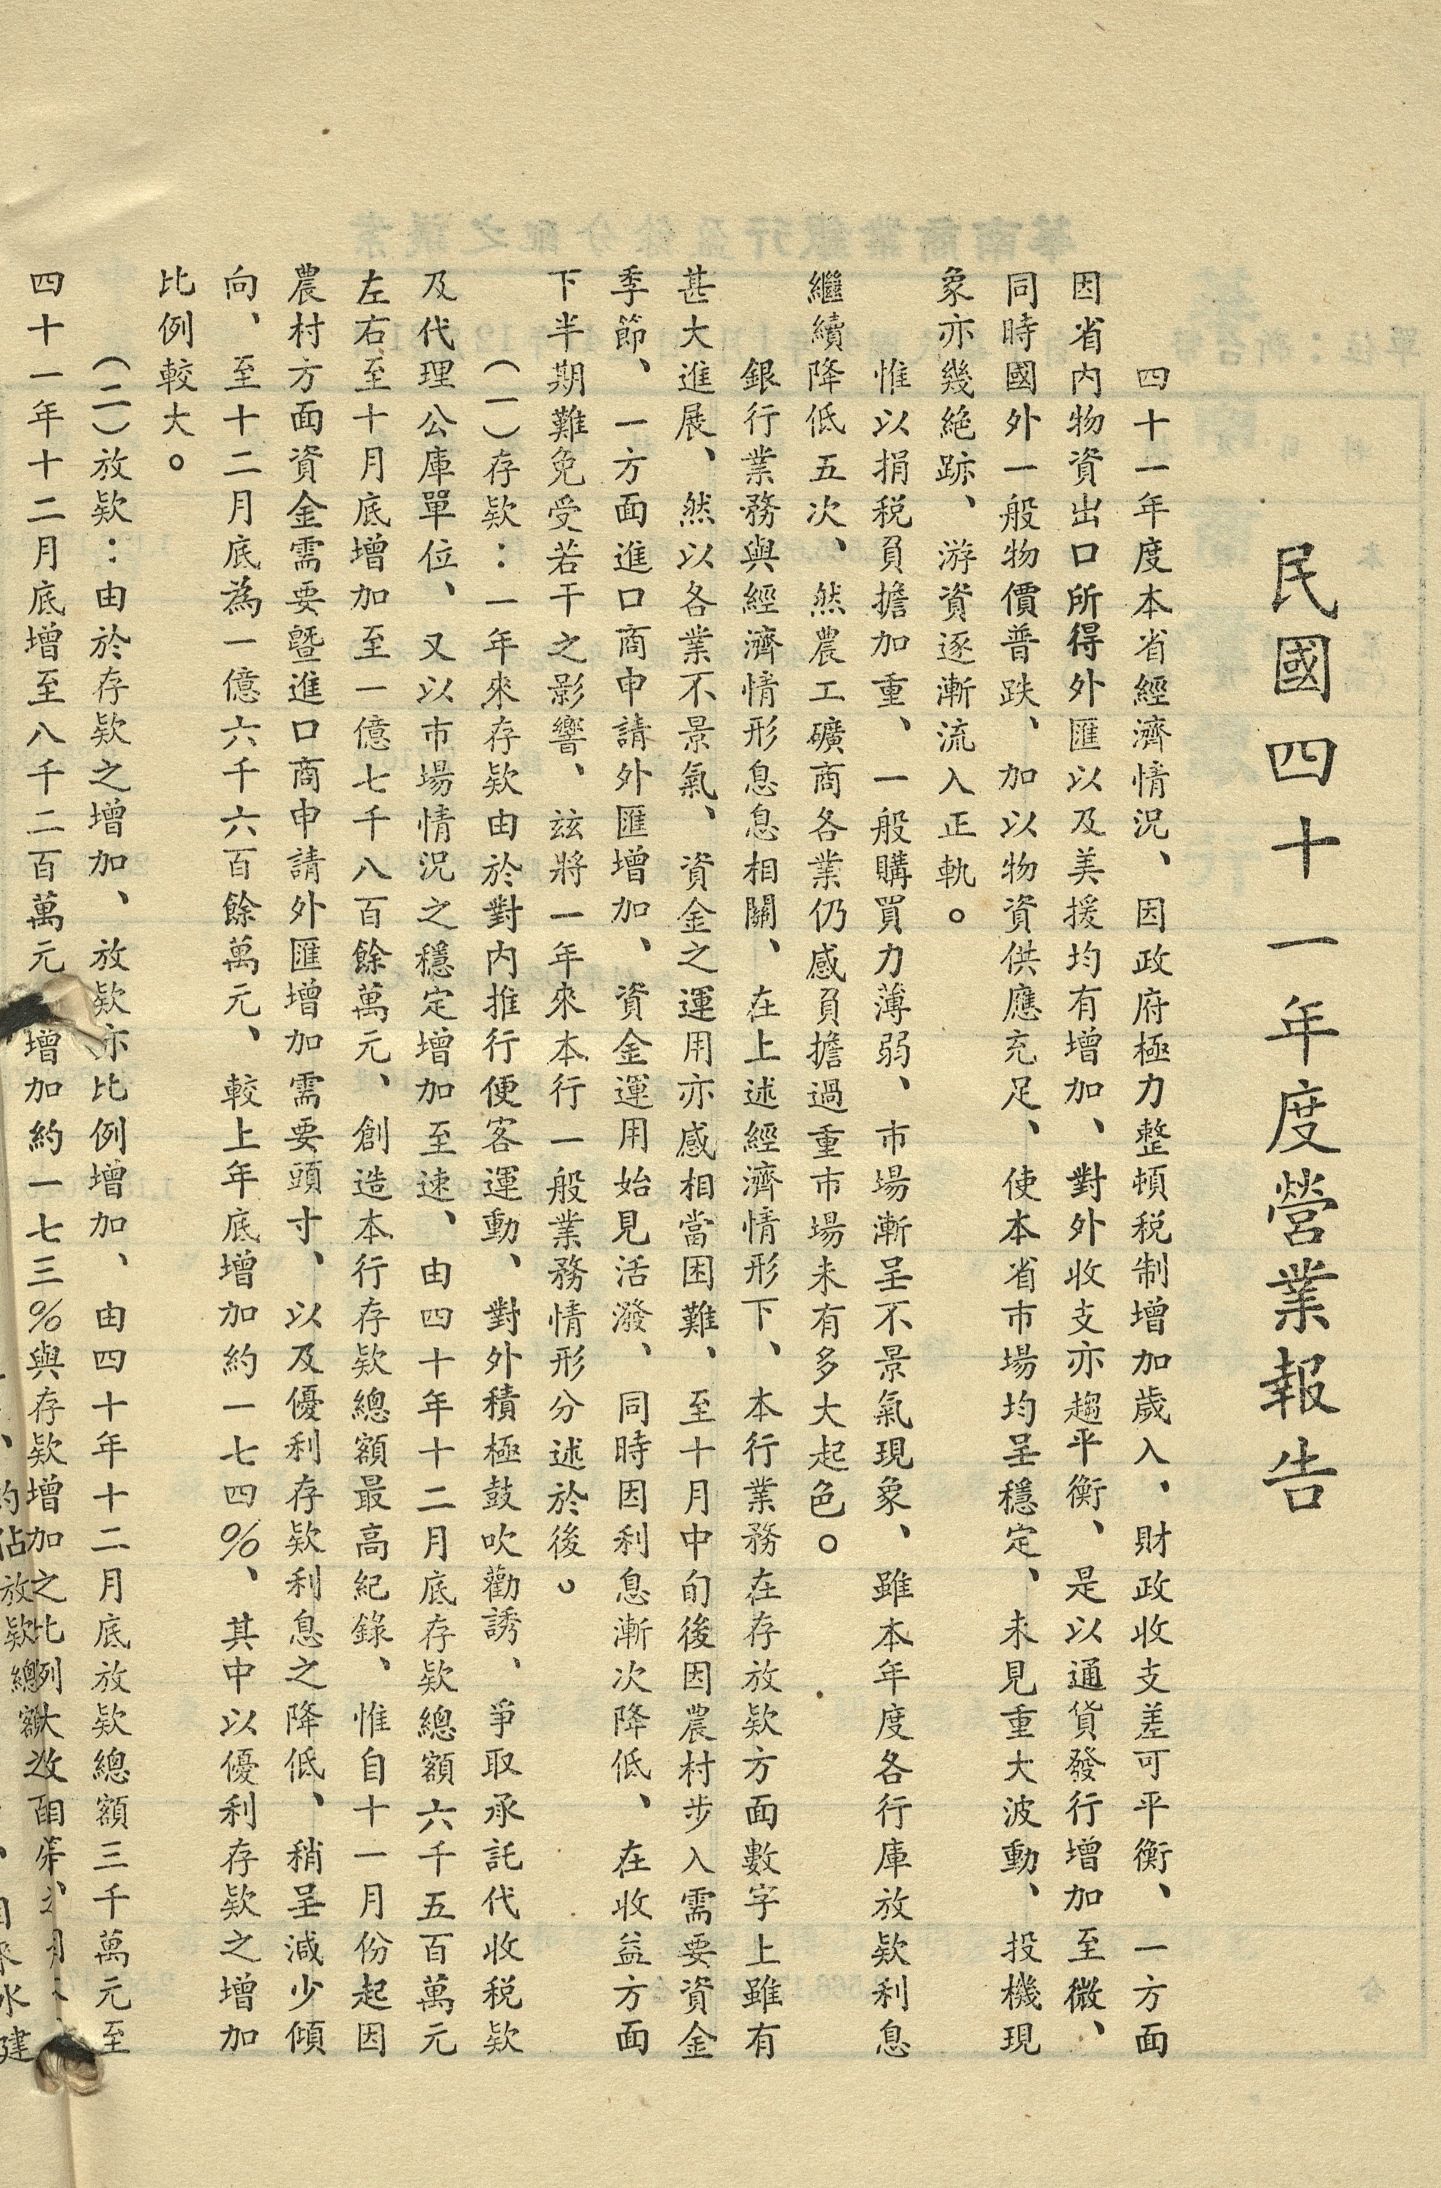 民國四十一年度營業報告
四十一年度本省經濟情況、因政府極力整頓税制增加歲入、財政收支差可平衡、一方面
因省內物資出口所得外匯以及美援均有增加、對外收支亦趨平衡、是以通貨發行增加至微、
同時國外一般物價普跌、加以物資供應充足、使本省市場均呈穩定、未見重大波動、投機現
象亦幾絕跡、游資逐漸流入正軌。
惟以捐税負擔加重、一般購買力薄弱、市場漸呈不景氣現象、雖本年度各行庫放款利息
繼續降低五次、然農工礦商各業仍感負擔過重市場未有多大起色。
銀行業務與經濟情形息息相關、在上述經濟情形下、本行業務在存放款方面數字上雖有
甚大進展、然以各業不景氣、資金之運用亦感相當困難、至十月中旬後因農村步入需要資金
季節、一方面進口商申請外匯增加、資金運用始見活潑、同時因利息漸次降低、在收益方面
下半期難免受若干之影響、玆將一年來本行一般業務情形分述於後。
(一)存款：一年來存款由於對內推行便客運動、對外積極鼓吹勸誘、爭取承託代收税款
及代理公庫單位、又以市場情況之穩定增加至速、由四十年十二月底存款總額六千五百萬元
左右至十月底增加至一億七千八百餘萬元、創造本行存款總額最高紀錄、惟自十一月份起因
農村方面資金需要暨進口商申請外匯增加需要頭寸、以及優利存款利息之降低、稍呈減少傾
向、至十二月底為一億六千六百餘萬元、較上年底增加約一七四％、其中以優利存款之增加
比例較大。
(二)放款：由於存款之增加、放款亦比例增加、由四十年十二月底放款總額三千萬元至
四十一年十二月底增至八千二百萬元增加約一七三％與存款增加之比例大